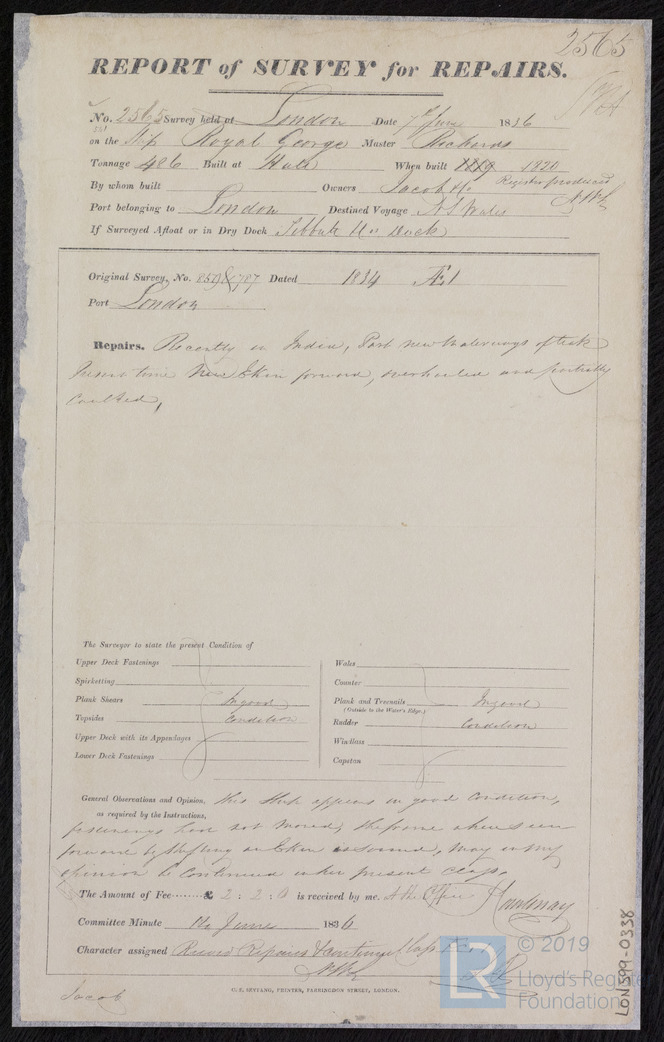 2565
REPORT of SURVEY for REPAIRS.
No. 2565 Survey held at London Date 7th June 1836
on the Ship Royal George Master Richards
Tonnage 486 Built at Hull When built 1819 1820
By whom built Owners Jacob & Co Register produced
Port belonging to London Destined Voyage N S Wales
If Surveyed Afloat or in Dry Dock Dock
Original Survey, No. 859 & 787 Dated 1834 Æ1
Port London
Repairs. Recently in India, Part new Waterways of teak
Present time New Ekin forward, overhauled and partially
Caulked,
The Surveyor to state the present Condition of
Upper Deck Fastenings
Spirketting
Plank Shears In good
Topsides Condition
Upper Deck with its Appendages
Lower Deck Fastenings
Wales
Counter
Plank and Treenails In good
(Outside to the Water's Edge.)
Rudder Condition
Windlass
Capstan
General Observations and Opinion, This Ship appears in good Condition,
as required by the Instructions,
fastenings have not moved, the frame when seen
forward by shifting an Ekin is sound, may in my
opinion be Continued in her present Class,
The Amount of Fee £ 2 : 2 : 0 is received by me. At the Office
Committee Minute June 1836
Character assigned Record Repairs & continue Class
W. E. SEVYANG, PRINTER, FARRINGDON STREET, LONDON.
Jacob
LR © 2019
Lloyd's Register
Foundation
LON 599-0338